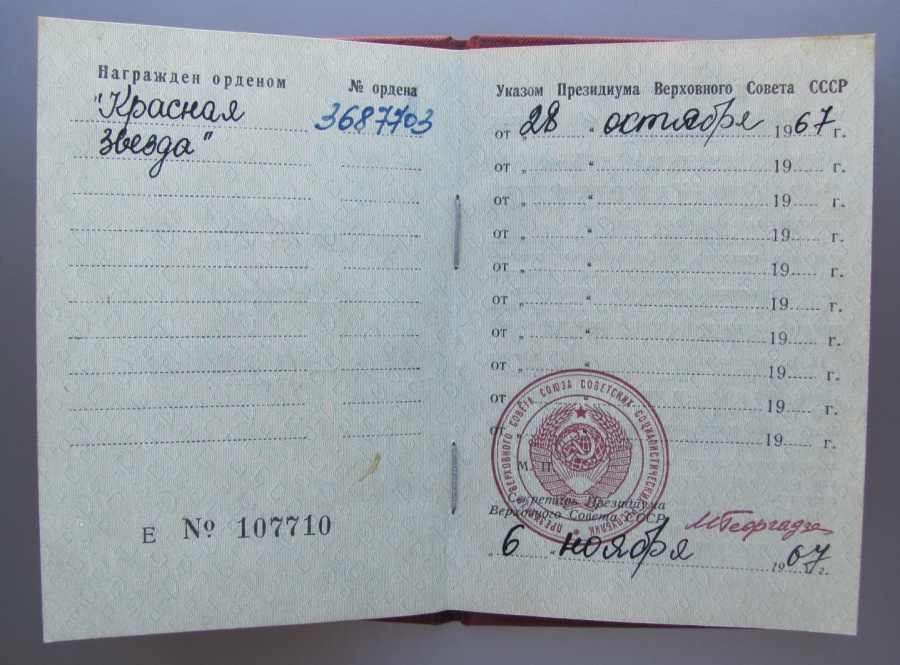 Награжден орденом
№ ордена
"Красная
3687703
звезда"
Е № 107710
Указом Президиума Верховного Совета СССР
от „ 28 “ октября 1967 г.
от „ “ 19 г.
от „ “ 19 г.
от „ “ 19 г.
от „ “ 19 г.
от „ “ 19 г.
от „ “ 19 г.
от „ “ 19 г.
от „ “ 19 г.
от „ 19 г.
ПРЕЗИДИУМ ВЕРХОВНОГО СОВЕТА СОЮЗА СОВЕТСКИХ СОЦИАЛИСТИЧЕСКИХ РЕСПУБЛИК
М. П.
Секретарь Президиума
Верховного Совета СССР
МГеоргадзе
„ 6 “ ноября 1967 г.